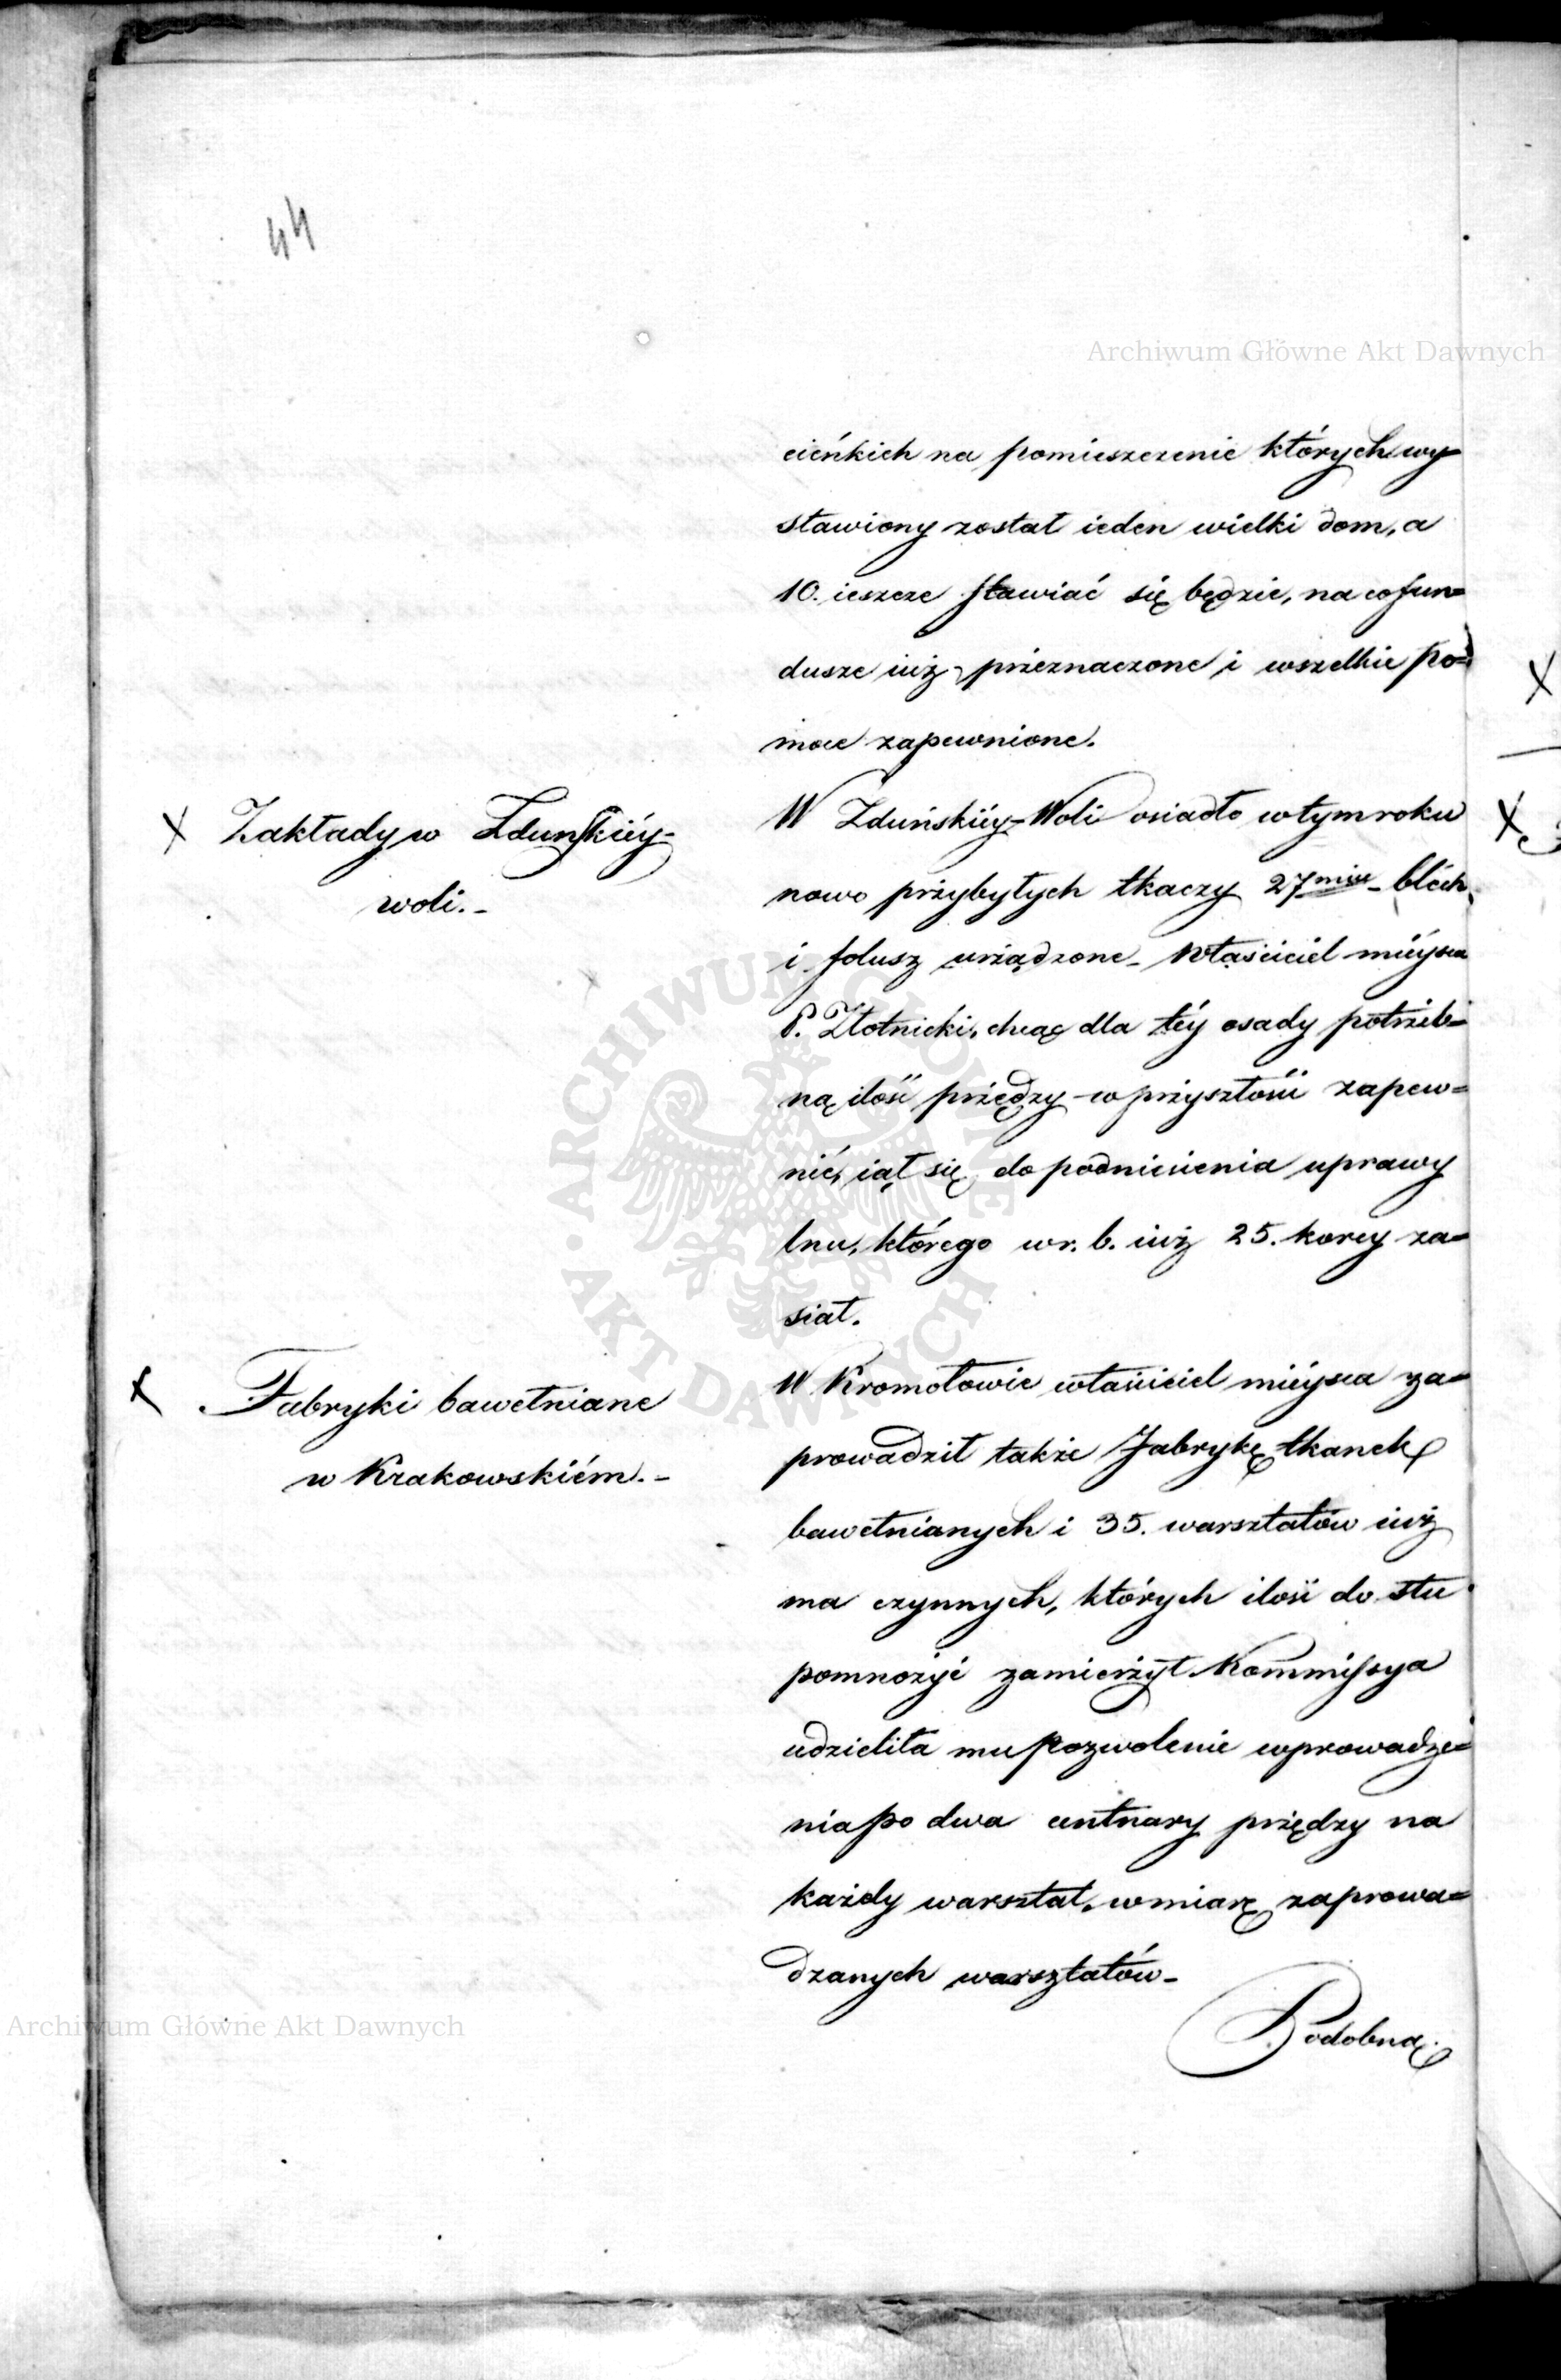 44
Archiwum Główne Akt Dawnych
cieńkich na pomieszczenie których wy=
stawiony został ieden wielki dom, a
10. ieszcze stawiać się będzie, na co fun=
dusze iuż przeznaczone i wszelkie po=
moce zapewnione.
X Zakłady w Zduńskiéy-
woli.-
W Zduńskiéy-Woli osiadło w tym roku
nowo przybyłych tkaczy 27miu - bléch
i folusz urządzone - Właściciel mieysca
P. Złotnicki, chcąc dla téy osady potrzeb=
ną ilość przędzy w przyszłości zapew=
nić, iął się do podniesienia uprawy
lnu, którego w r. b. iuż 25. korcy za=
siał.
X Fabryki bawełniane
w Krakowskiém.-
W Kromołowie właściciel mieysca za=
prowadził także Fabrykę tkanek
bawełnianych i 35. warsztatów iuż
ma czynnych, których ilość do stu
pomnożyć zamierzył. Kommissya
udzieliła mu pozwolenie wprowadze=
nia po dwa centnary przędzy na
każdy warsztat, w miarę zaprowa=
dzanych warsztatów-
Podobną
Archiwum Główne Akt Dawnych
ARCHIWUM GŁÓWNE
AKT DAWNYCH